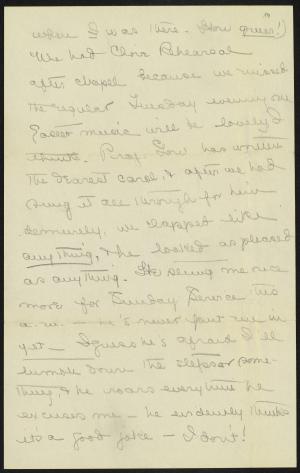 when I was there. How queer!)
We had Choir Rehearsal
after chapel because we missed
the regular Tuesday evening one
Easter music will be lovely I
think. Prof. Low has written
the dearest carol, & after we had
sung it all through for him
demurely, we clapped like
anything, & he looked as pleased
as anything. He stung me once
more for Sunday Service this
a.m. — he's never put me in
yet — I guess he's afraid I'll
tumble down the steps or some-
thing, & he roars everytime he
excuses me — he evidently thinks
it's a good joke — I don't!